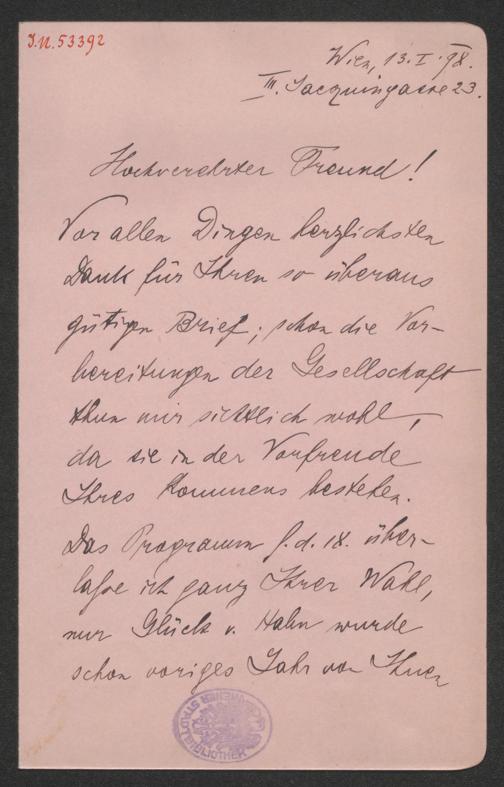 I.N. 53392
Wien, 13. I. 98.
III. Jacquingasse 23.
Hochverehrter Freund!
Vor allen Dingen herzlichsten
Dank für Ihren so überaus
gütigen Brief; schon die Vor-
bereitungen der Gesellschaft
thun mir sichtlich wohl,
da sie in der Vorfreude
Ihres Kommens bestehen.
Das Programm f. d. IX. über-
laße ich ganz Ihrer Wahl,
nur Glück v. Hahn wurde
schon voriges Jahr von Ihnen
WIENER STADTBIBLIOTHEK